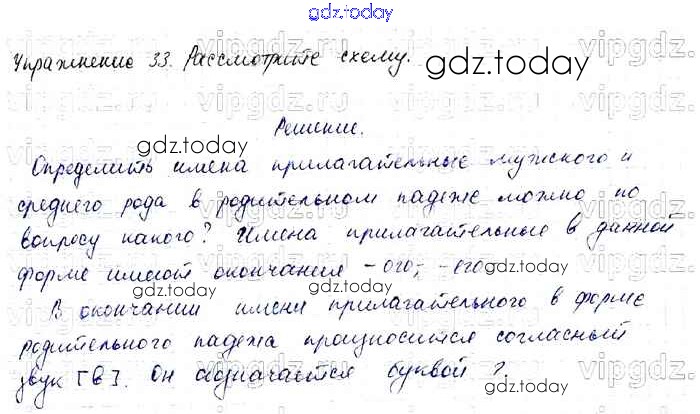 gdz.today
Упражнение 33. Рассмотрите схему.
gdz.today
Решение.
gdz.today
Определить имена прилагательные мужского и
среднего рода в родительном падеже можно по
вопросу какого? Имена прилагательные в данной
форме имеют окончания -ого, -его-
gdz.today
В окончании имени прилагательного в форме
родительного падежа произносится согласный
звук [в]. Он обозначается буквой г.
gdz.today